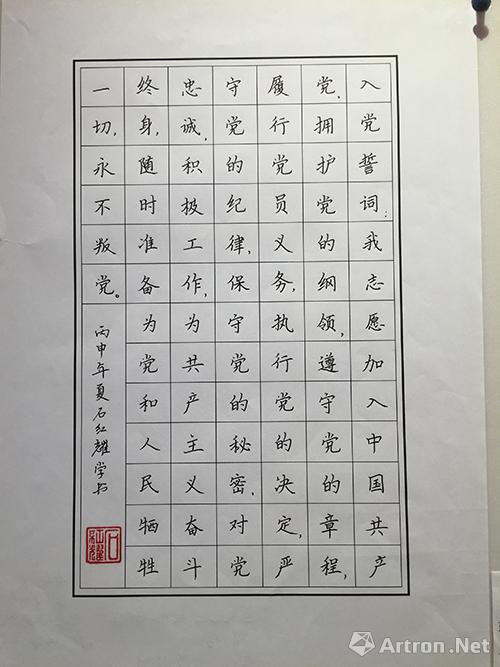 入党誓词:我志愿加入中国共产
党,拥护党的纲领,遵守党的章程,
履行党员义务,执行党的决定,严
守党的纪律,保守党的秘密,对党
忠诚,积极工作,为共产主义奋斗
终身,随时准备为党和人民牺牲
一切,永不叛党。
丙申年夏石红耀学书
Artron.Net